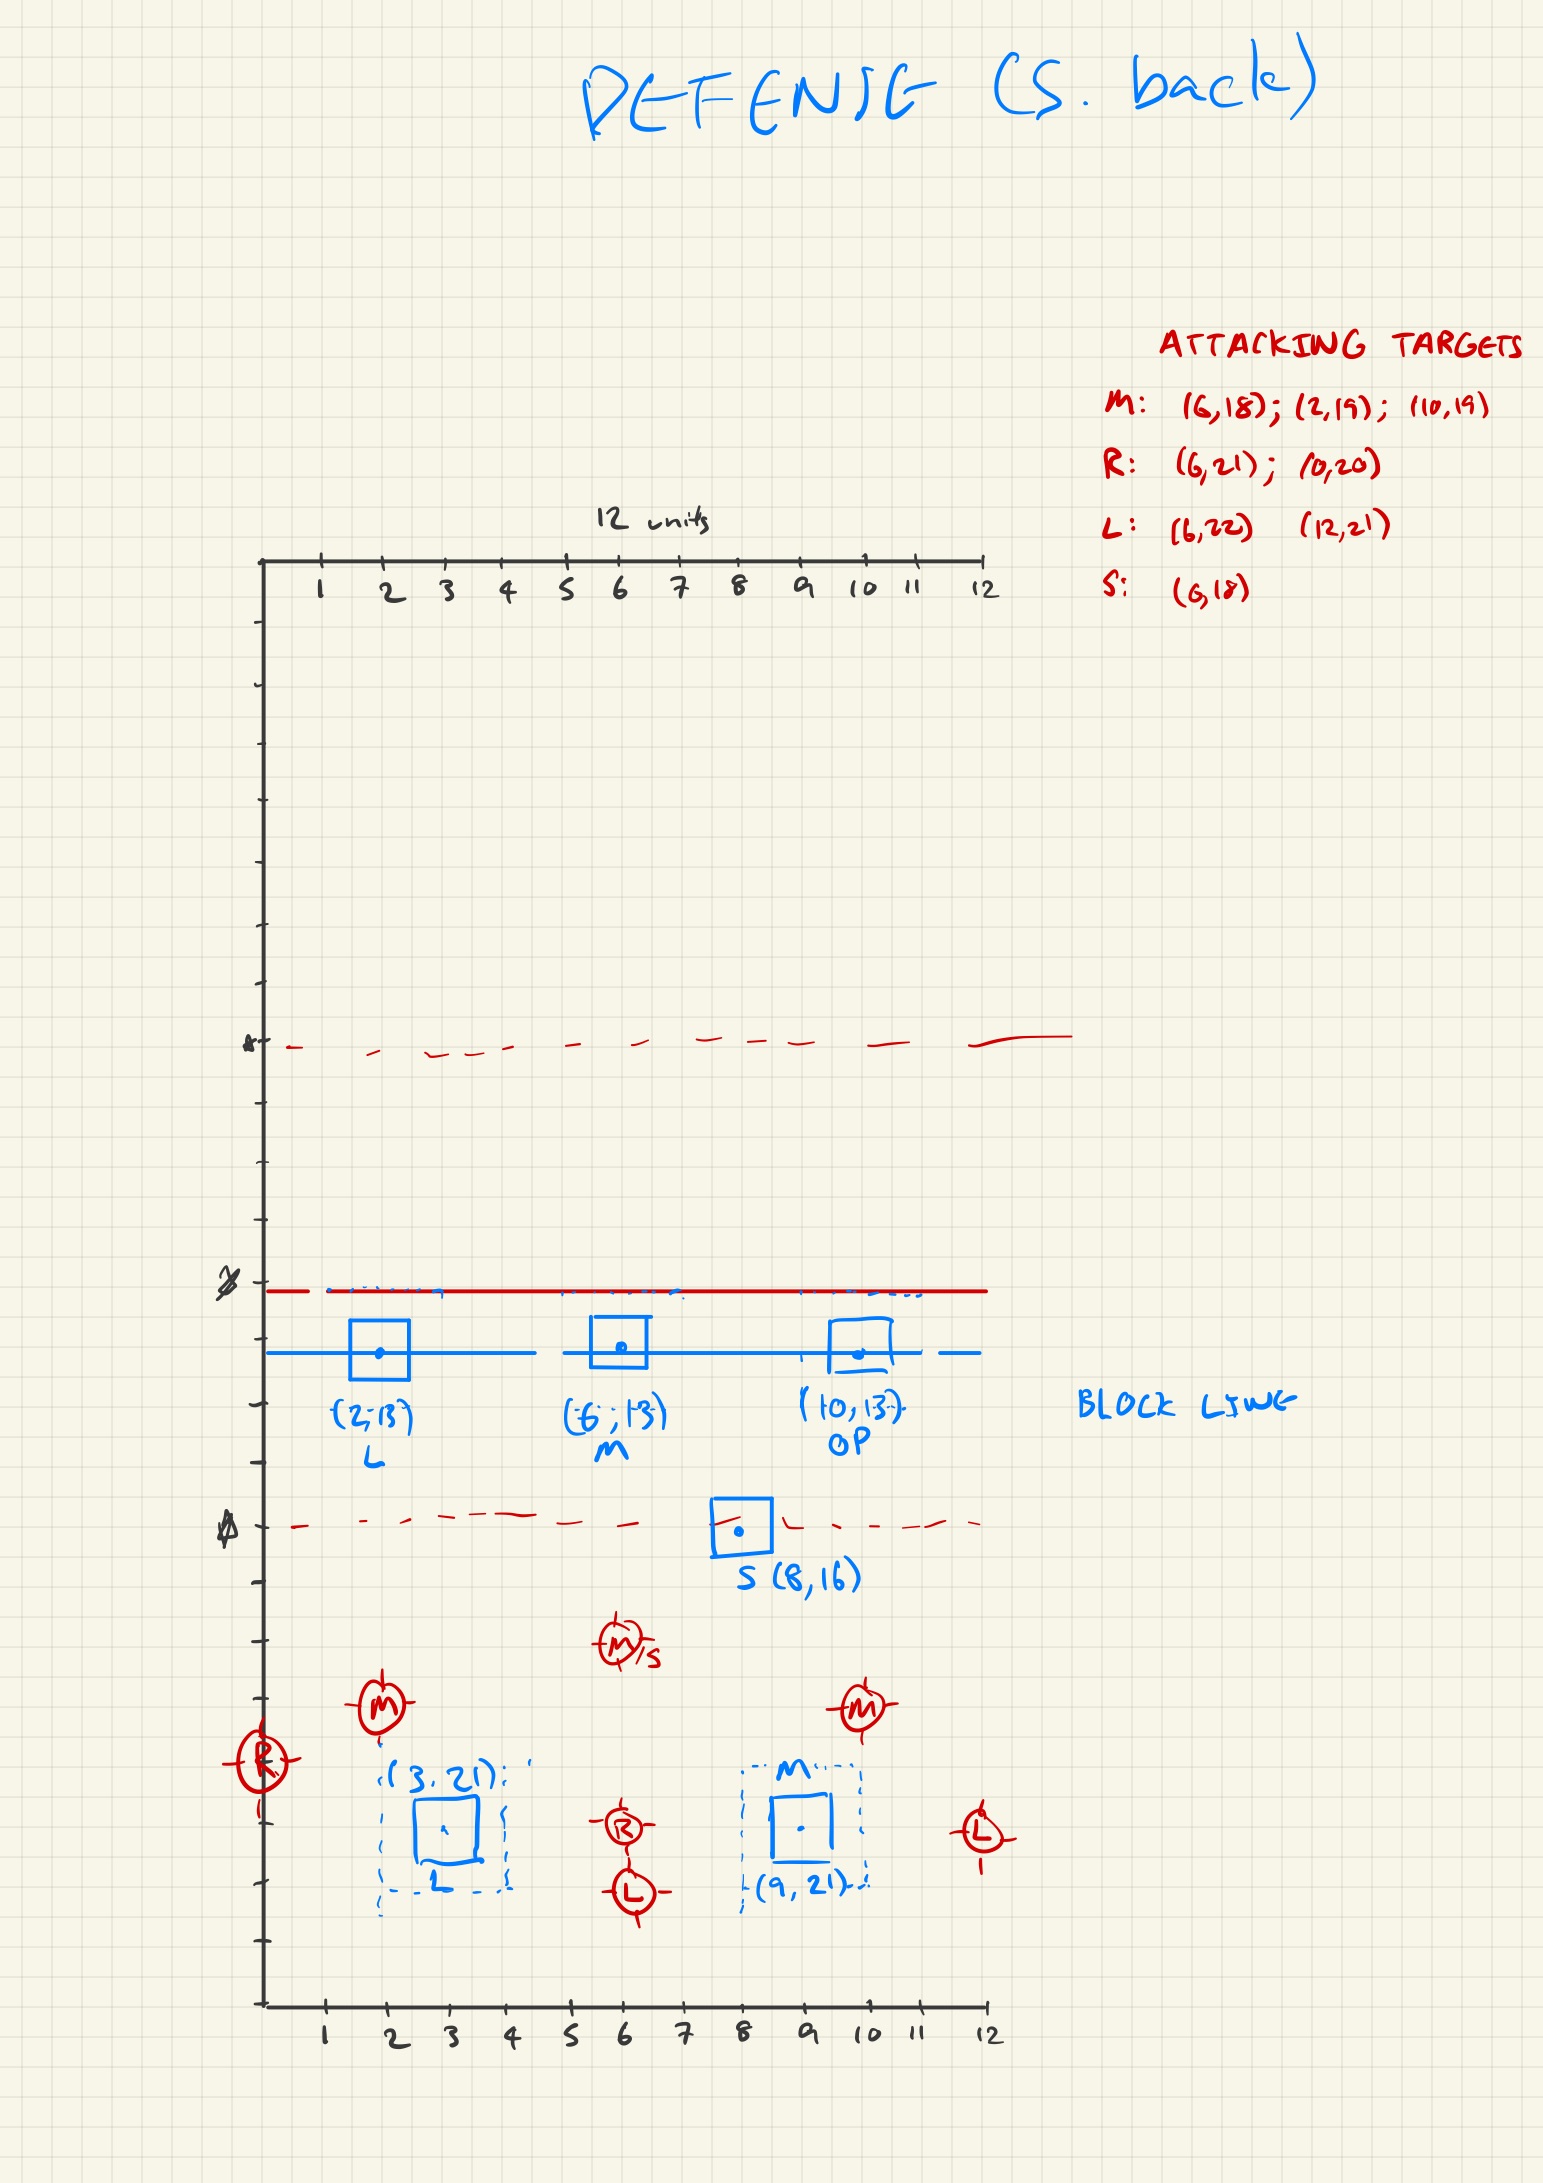 DEFENSE (S. back)
ATTACKING TARGETS
M: (6,18); (2,19); (10,19)
R: (6,21); (0,20)
L: (6,22) (12,21)
S: (6,18)
12 units
1 2 3 4 5 6 7 8 9 10 11 12
(2,13) (6,13) (10,13)
L M OP
BLOCK LINE
S (8,16)
M/S
M M
R
(3,21) M
R L
L L (9,21)
1 2 3 4 5 6 7 8 9 10 11 12